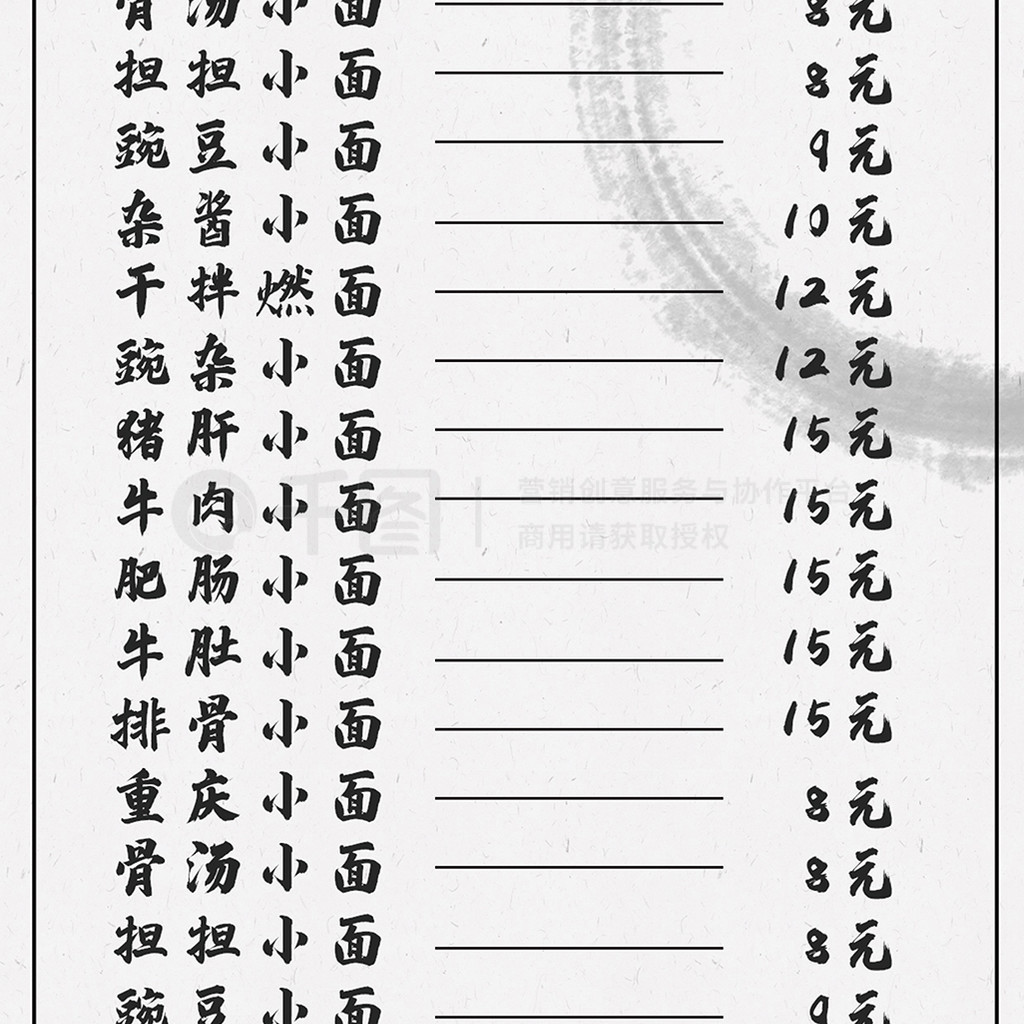 骨汤小面 8元
担担小面 8元
豌豆小面 9元
杂酱小面 10元
干拌燃面 12元
豌杂小面 12元
猪肝小面 15元
牛肉小面 15元
千图 营销创意服务与协作平台
商用请获取授权
肥肠小面 15元
牛肚小面 15元
排骨小面 15元
重庆小面 8元
骨汤小面 8元
担担小面 8元
豌豆小面 9元